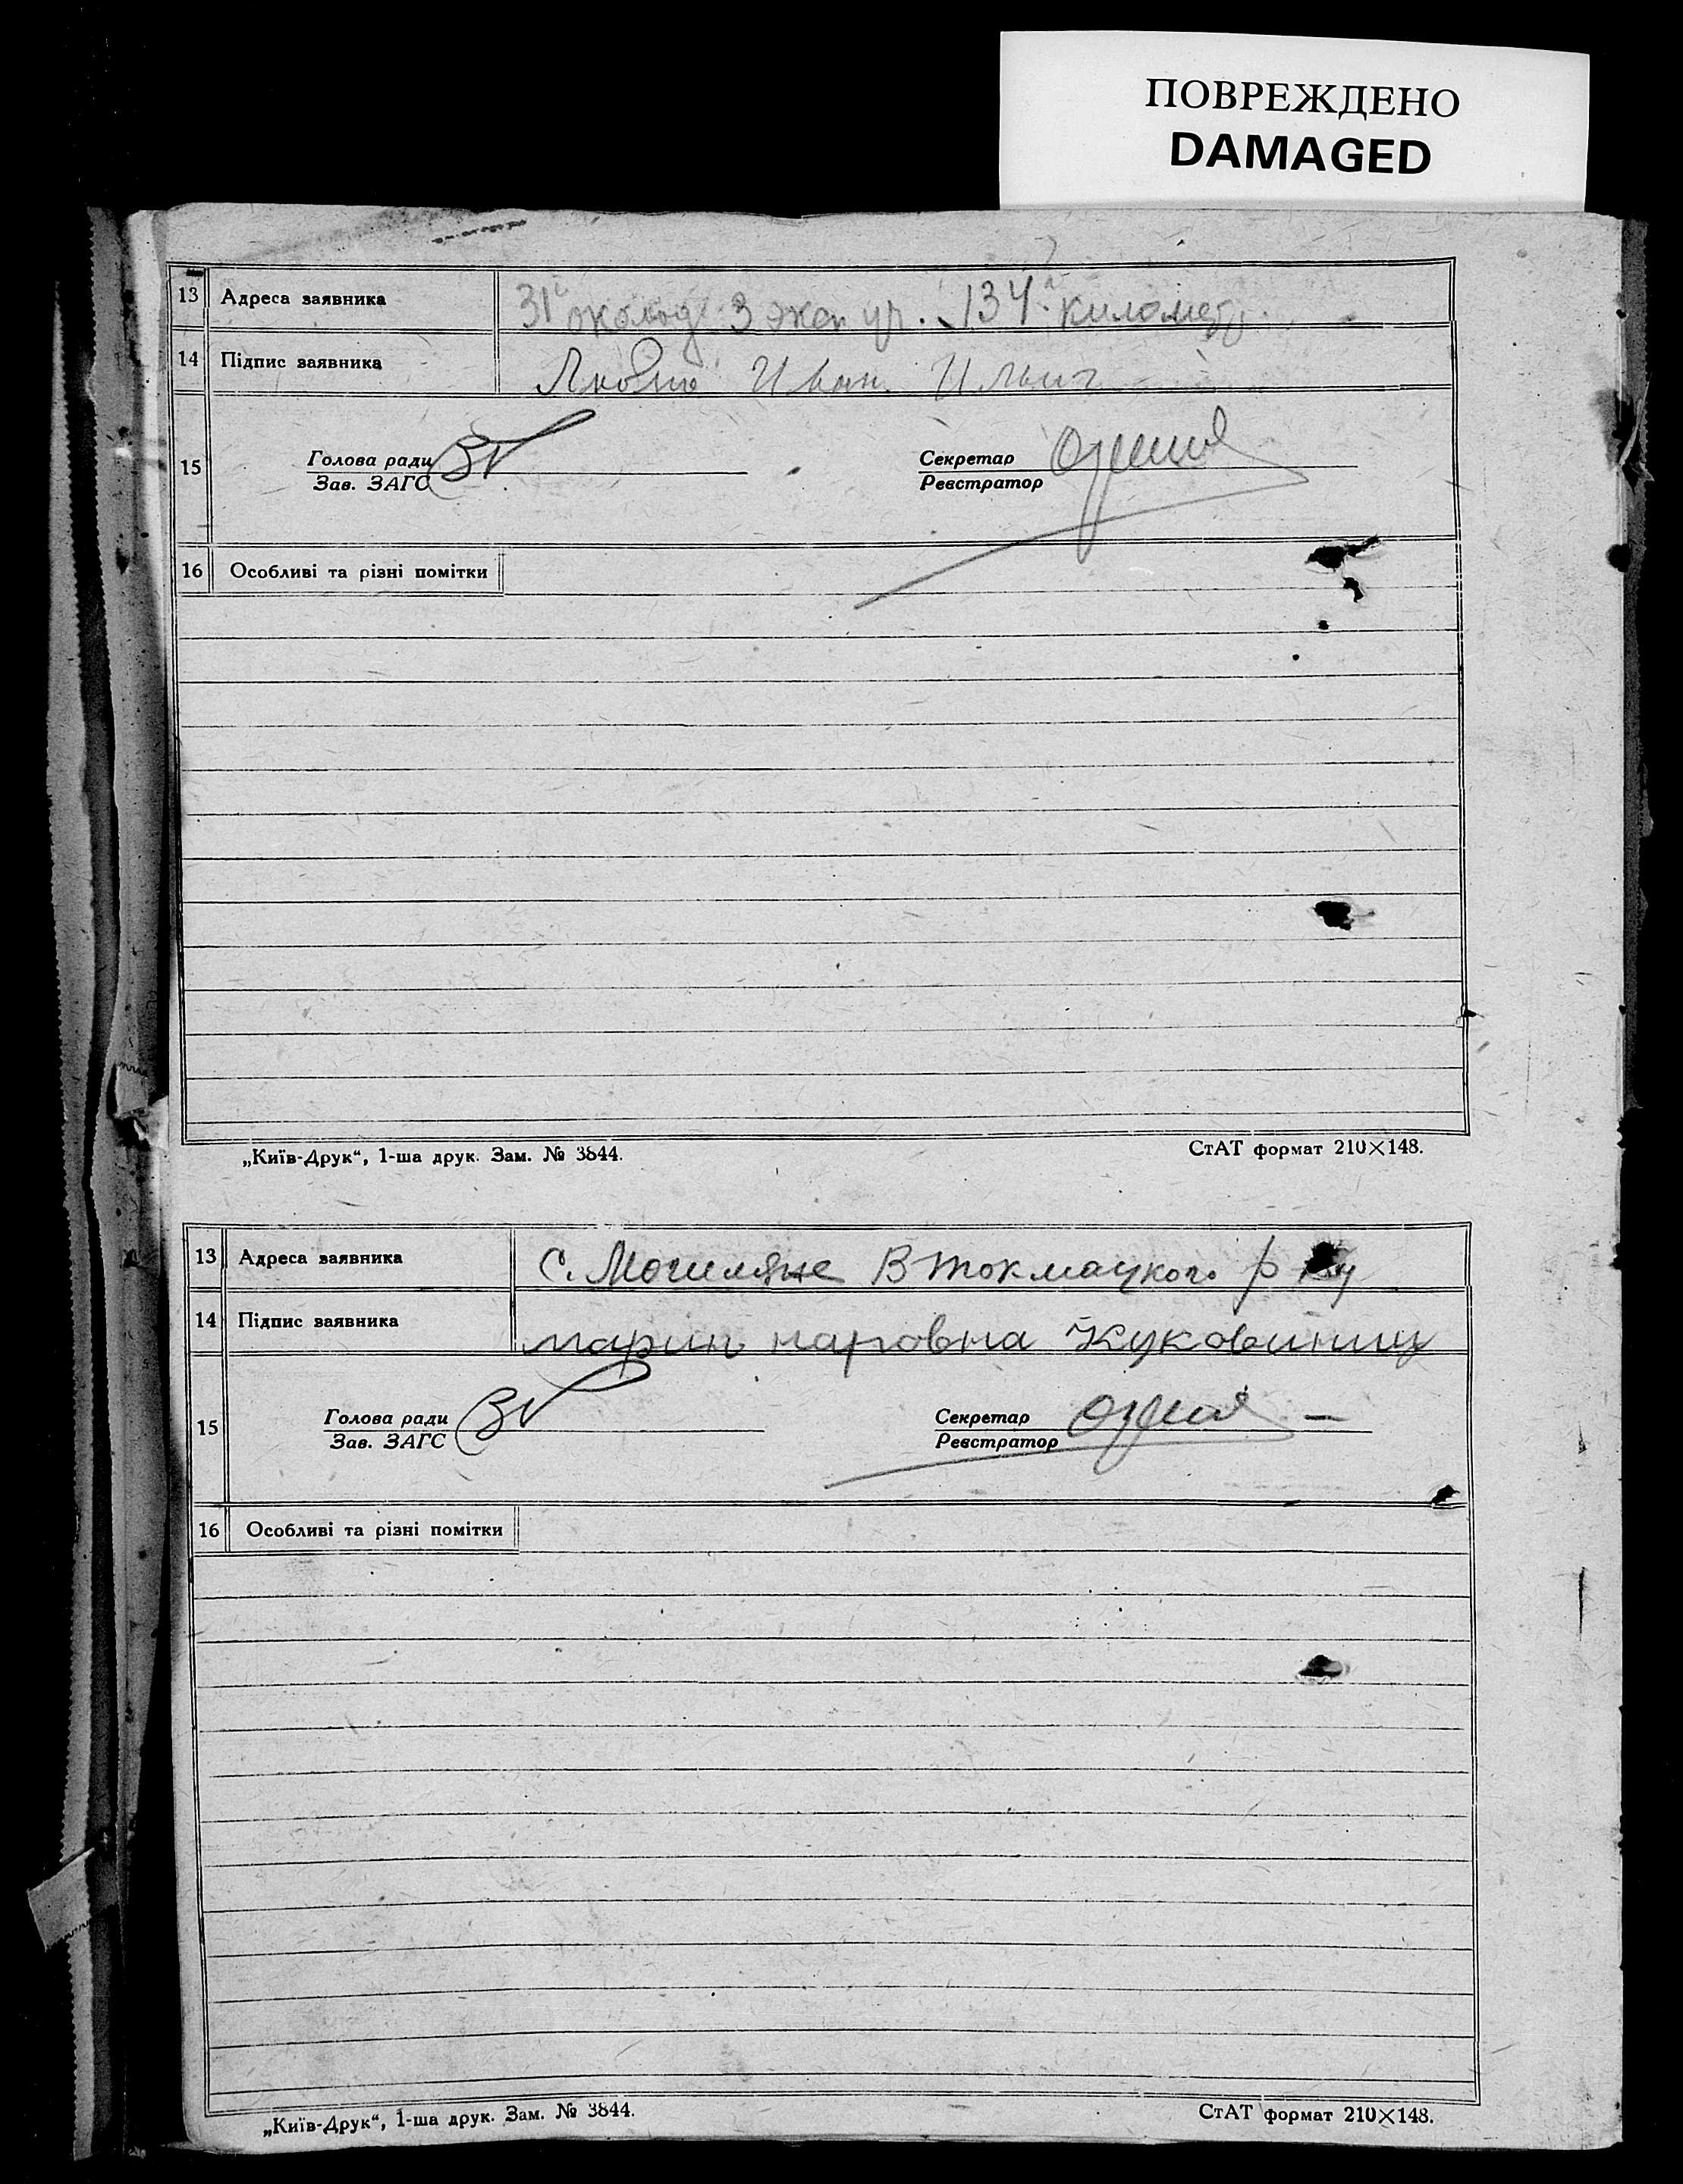 ПОВРЕЖДЕНО
DAMAGED
13 Адреса заявника 31й околод 3 экс. уч. 134й километр.
14 Підпис заявника Иван Ильич
15 Голова ради Секретар
Зав. ЗАГС Реєстратор
16 Особливі та різні помітки
„Київ-Друк“, 1-ша друк. Зам. № 3844. СтАТ формат 210×148.
13 Адреса заявника с. Могиляне В Токмацкого р
14 Підпис заявника
15 Голова ради Секретар
Зав. ЗАГС Реєстратор
16 Особливі та різні помітки
„Київ-Друк“, 1-ша друк. Зам. № 3844. СтАТ формат 210×148.